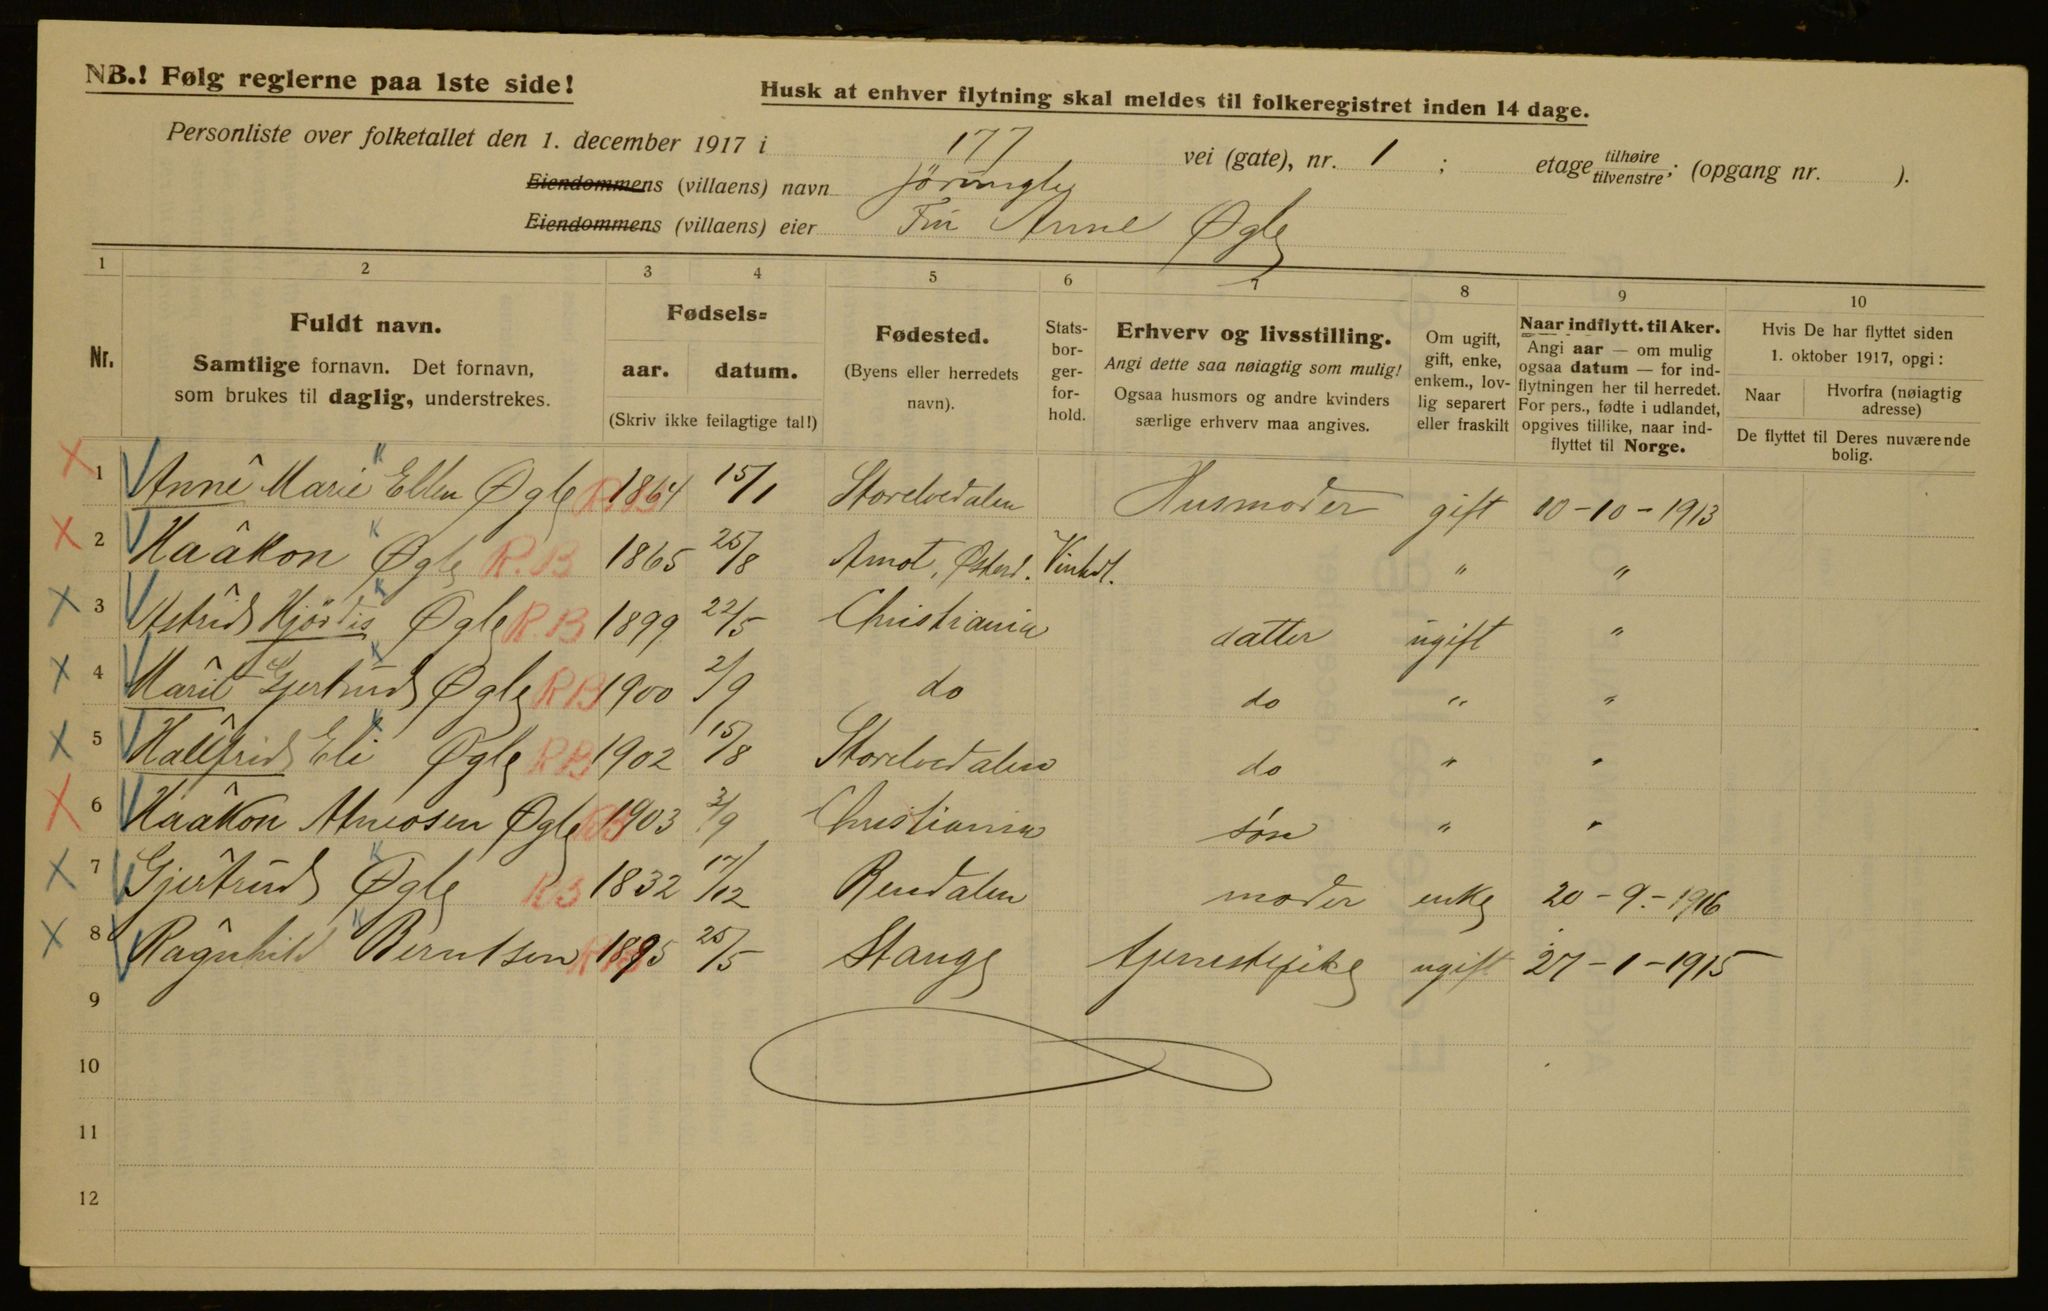 NB.! Følg reglerne paa 1ste side!
Husk at enhver flytning skal meldes til folkeregistret inden 14 dage.
Personliste over folketallet den 1. december 1917 i 177 vei (gate), nr. 1 ; etage tilhøire tilvenstre; (opgang nr. ).
Eiendommens (villaens) navn
Eiendommens (villaens) eier Fru Anne Øgle
1 2 3 4 5 6 7 8 9 10
Nr.
Fuldt navn.
Samtlige fornavn. Det fornavn,
som brukes til daglig, understrekes.
Fødsels=
aar. datum.
(Skriv ikke feilagtige tal!)
Fødested.
(Byens eller herredets
navn).
Stats-
bor-
ger-
for-
hold.
Erhverv og livsstilling.
Angi dette saa nøiagtig som mulig!
Ogsaa husmors og andre kvinders
særlige erhverv maa angives.
Om ugift,
gift, enke,
enkem., lov-
lig separert
eller fraskilt
Naar indflytt. til Aker.
Angi aar — om mulig
ogsaa datum — for ind-
flytningen her til herredet.
For pers., fødte i utlandet,
opgives tillike, naar ind-
flyttet til Norge.
Hvis De har flyttet siden
1. oktober 1917, opgi:
Naar
Hvorfra (nøiagtig
adresse)
De flyttet til Deres nuværende
bolig.
1 Anne Marie Ellen Øgle RB 1864 15/1 Storelvedalen Husmoder gift 10-10-1913
2 Haakon Øgle R.B 1865 25/8 Amot, Østerd. " "
3 Astrid Hjørdis Øgle R.B 1899 22/5 Christiania datter ugift "
4 Marit Gjertrud Øgle RB 1900 2/9 do do " "
5 Hallfrid Eli Øgle RB 1902 15/8 Storelvedalen do " "
6 Haakon Øgle RB 1903 2/9 Christiania søn " "
7 Gjertrud Øgle RB 1832 17/12 Rendalen moder enke 20-9.-1916
8 Ragnhild Berntsen RB 1895 25/5 Stange tjenestepike ugift 27-1-1915
9
10
11
12